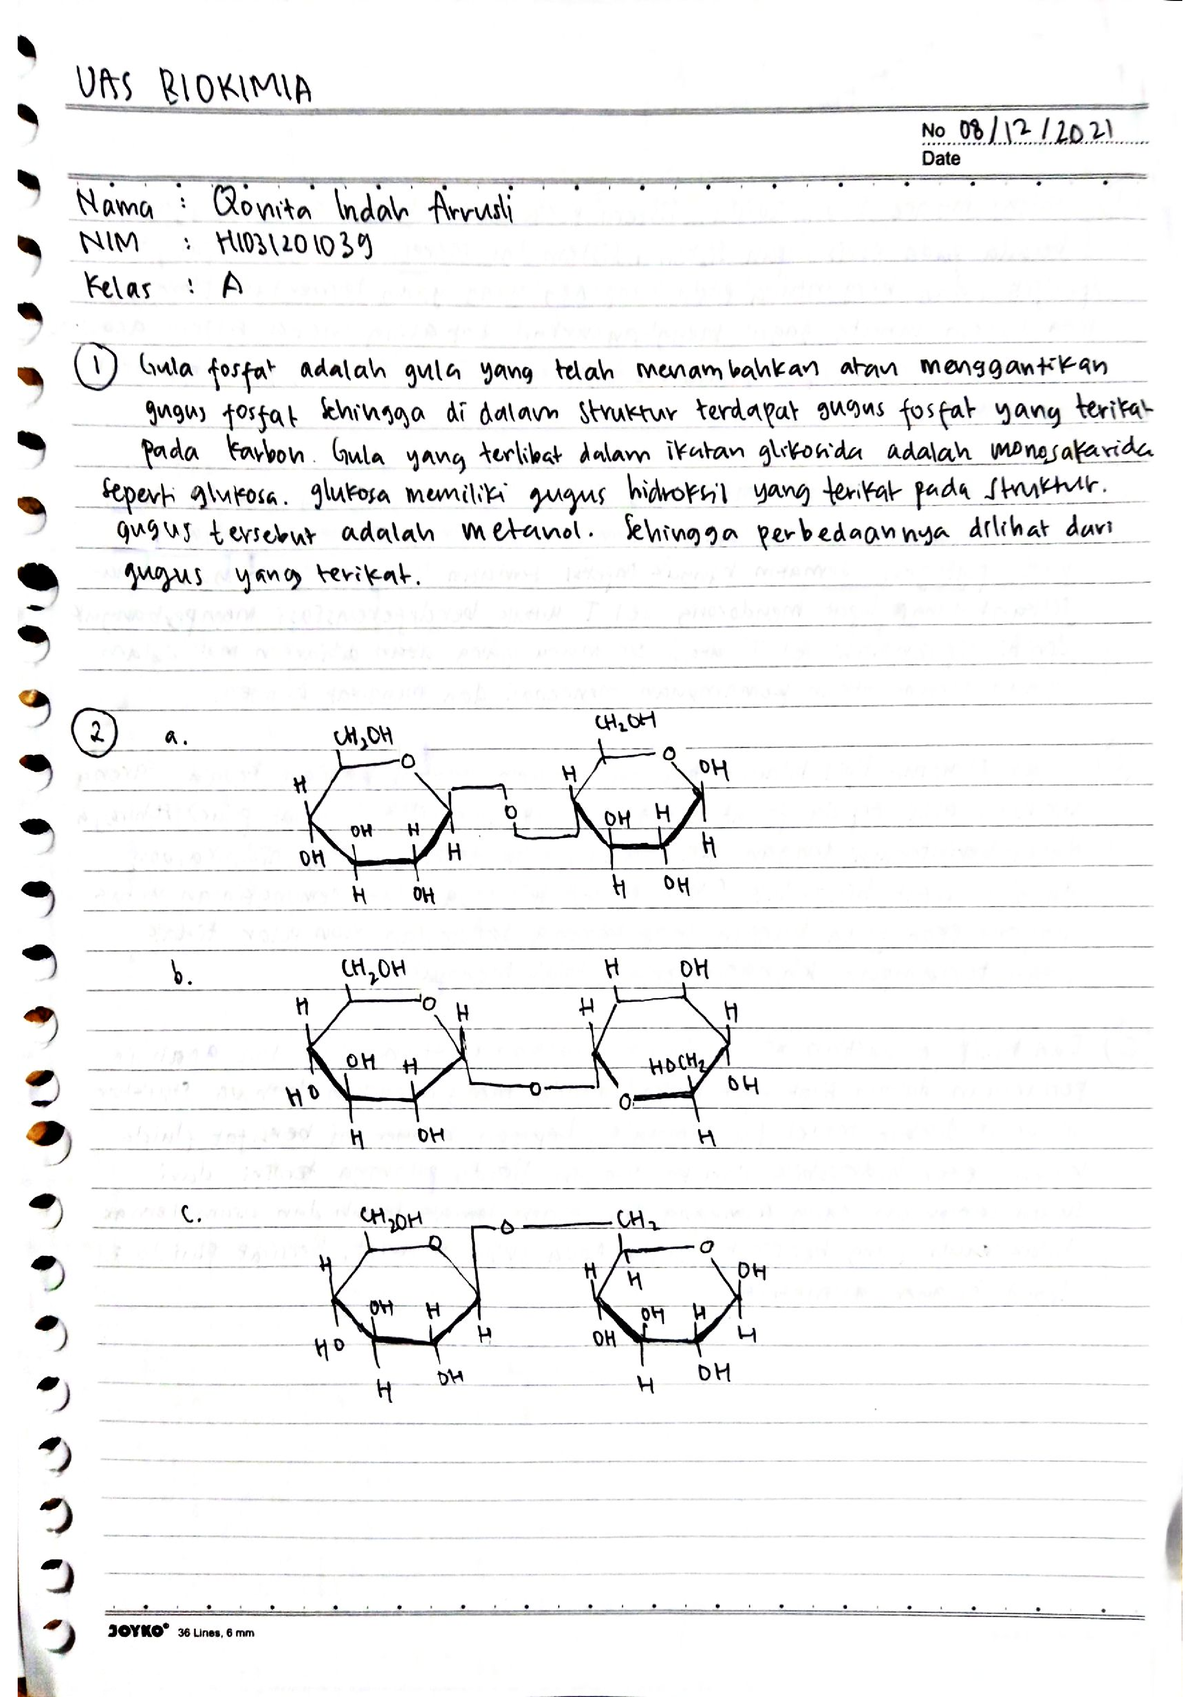 UAS BIOKIMIA
No 08/12/2021
Date
Nama : Qonita Indah Arrusli
NIM : H1031201039
Kelas : A
1 Gula fosfat adalah gula yang telah menambahkan atau menggantikan
gugus fosfat sehingga di dalam struktur terdapat gugus fosfat yang terikat
pada karbon. Gula yang terlibat dalam ikatan glikosida adalah monosakarida
seperti glukosa. glukosa memiliki gugus hidroksil yang terikat pada struktur.
gugus tersebut adalah metanol. Sehingga perbedaannya dilihat dari
gugus yang terikat.
2 a.
CH2OH CH2OH
O O
H H OH
O
OH H OH H
OH H H
H OH H OH
b. CH2OH H OH
H O H H H
OH H HOCH2
HO O O OH
H OH H
c. CH2OH O CH2
O O
H H H OH
OH H OH H
HO H OH H
H OH H OH
JOYKO 36 Lines, 6 mm